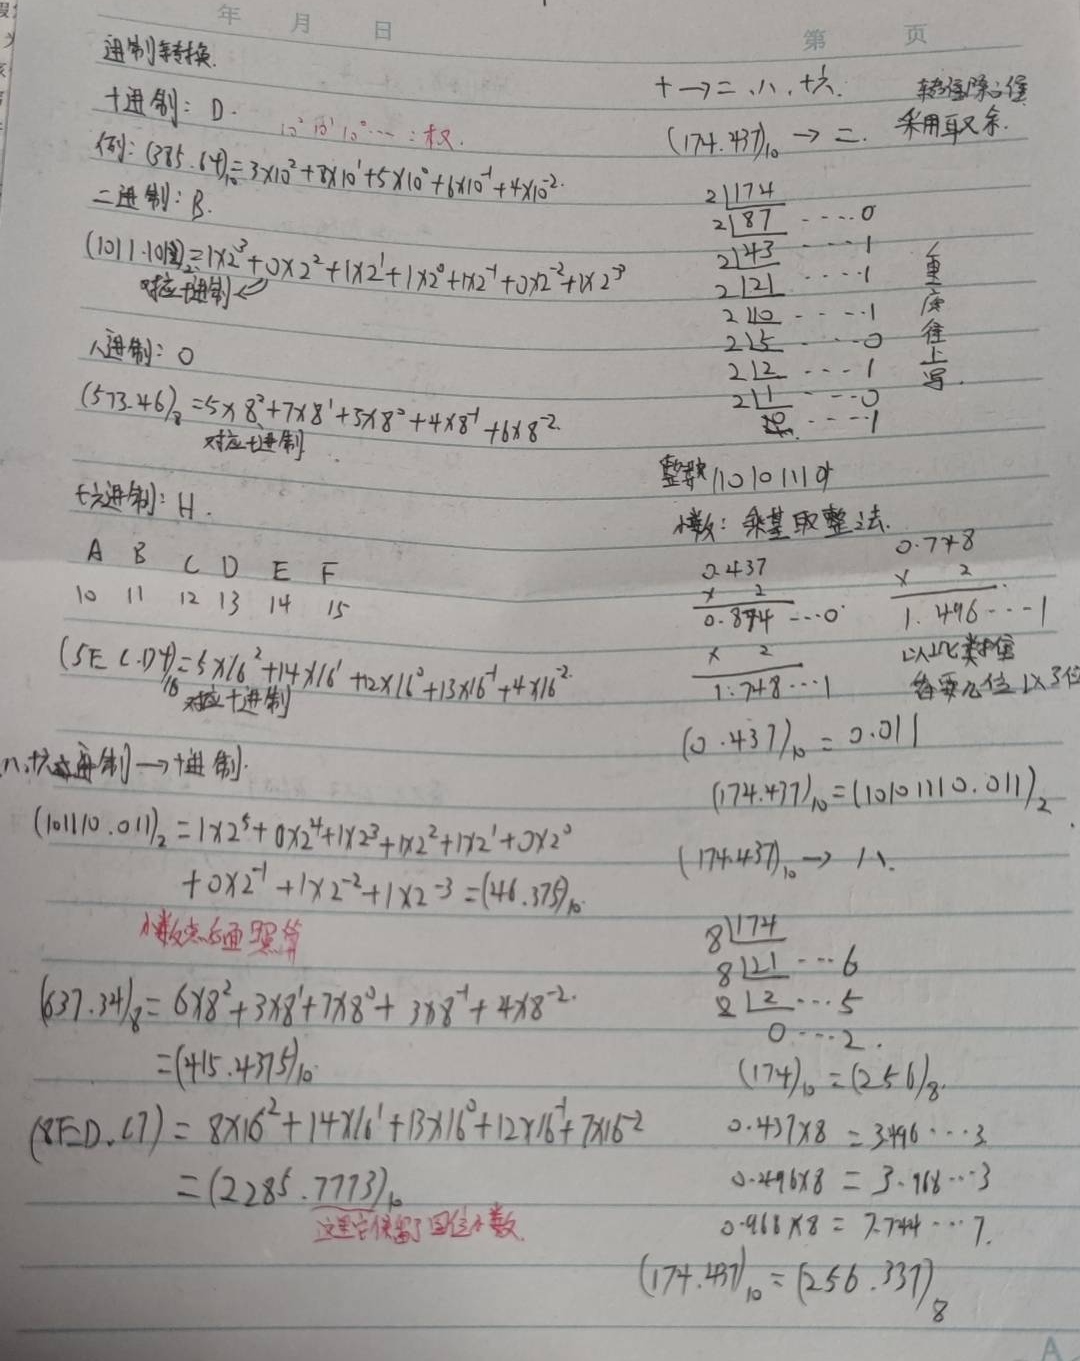 年 月 日
第 页
进制转换.
十进制: D.
10² 10¹ 10⁰ ……: 权.
例: (385.64)₁₀=3×10²+8×10¹+5×10⁰+6×10⁻¹+4×10⁻².
二进制: B.
(1011.101)₂=1×2³+0×2²+1×2¹+1×2⁰+1×2⁻¹+0×2⁻²+1×2⁻³
对应十进制
八进制: O
(573.46)₈=5×8²+7×8¹+3×8⁰+4×8⁻¹+6×8⁻².
对应十进制
十六进制: H.
A B C D E F
10 11 12 13 14 15
(5EC.D4)₁₆=5×16²+14×16¹+12×16⁰+13×16⁻¹+4×16⁻².
对应十进制
八、十六进制→十进制.
(101110.011)₂=1×2⁵+0×2⁴+1×2³+1×2²+1×2¹+0×2⁰
+0×2⁻¹+1×2⁻²+1×2⁻³=(46.375)₁₀.
小数点后面照算
(637.34)₈=6×8²+3×8¹+7×8⁰+3×8⁻¹+4×8⁻².
=(415.4375)₁₀.
(8ED.C7)=8×16²+14×16¹+13×16⁰+12×16⁻¹+7×16⁻²
=(2285.7773)₁₀
这里它保留了四位小数
十→二、八、十六.
采用取余.
(174.437)₁₀→二.
2|174
2|87 ····0
2|43 ····1
2|21 ····1
2|10 ····1
2|5 ····0
2|2 ····1
2|1 ····0
0 ····1
从重底往上写.
整数10101110
小数: 乘基取整法.
0.437
× 2
0.874 ···0
× 2
1.748 ···1
0.748
× 2
1.496 ···1
以此类推
看要几位 1×3位
(0.437)₁₀=0.011
(174.437)₁₀=(10101110.011)₂
(174.437)₁₀→八.
8|174
8|21 ···6
8|2 ···5
0 ···2.
(174)₁₀=(256)₈.
0.437×8=3.496 ···3
0.496×8=3.968 ···3
0.968×8=7.744 ···7.
(174.437)₁₀=(256.337)₈
A